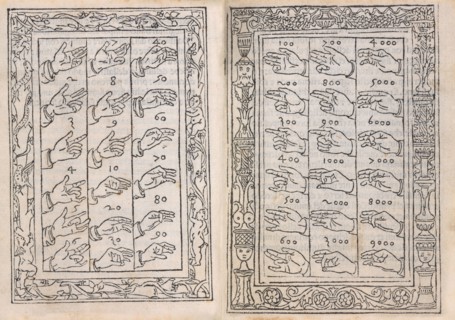 40
2 8 50
3 9 60
4 10 70
80
100 700 4000
200 800 5000
300 900 6000
400 1000 7000
500 2000 8000
600 3000 9000